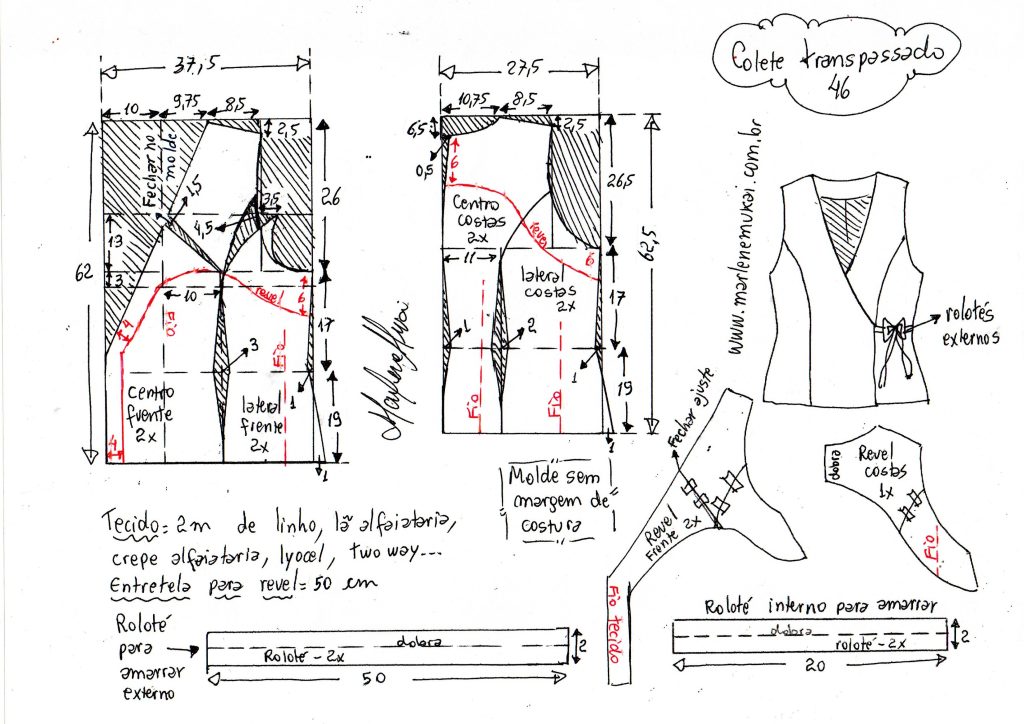 Colete transpassado
46
www.marlenemukai.com.br
37,5
10
9,75
8,5
2,5
Fechar no
molde
1,5
3,5
4,5
26
13
3
62
10
revel
6
4
Fio
17
3
Fio
1
Centro
frente
2x
lateral
frente
2x
19
4
1
Marlene Mukai
27,5
10,75
8,5
6,5
2,5
0,5
6
26,5
Centro
costas
2x
revel
6
11
lateral
costas
2x
62,5
17
1
2
1
Fio
Fio
19
1
Molde sem
margem de
costura
rolotés
externos
Fechar ajuste
Revel
Frente 2x
Fio tecido
dobra
Revel
costas
1x
Fio
Tecido = 2m de linho, lã alfaiataria,
crepe alfaiataria, lyocel, two way...
Entretela para revel = 50 cm
Roloté
para
amarrar
externo
dobra
Roloté - 2x
2
50
Roloté interno para amarrar
dobra
roloté - 2x
2
20